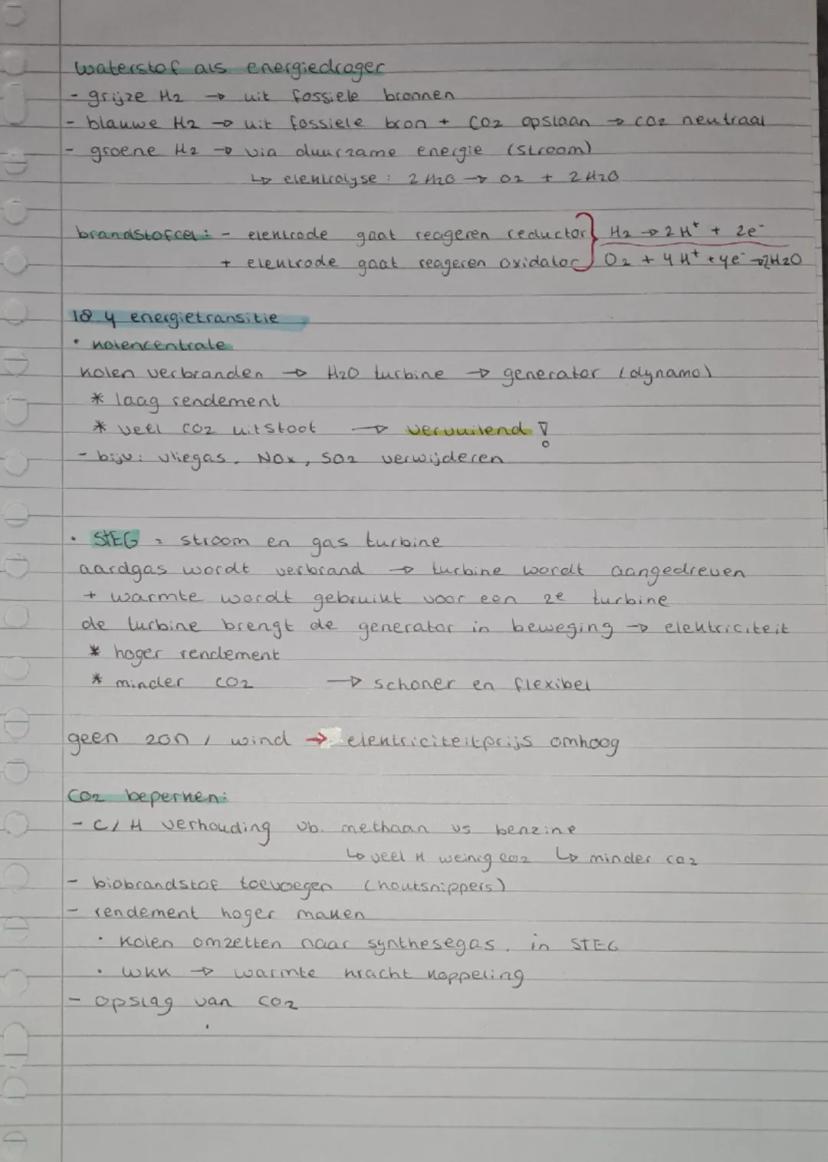 waterstof als energiedrager
- grijze H2 → uit fossiele bronnen
- blauwe H2 → uit fossiele bron + CO2 opslaan → co2 neutraal
- groene H2 → via duurzame energie (stroom)
↳ elektrolyse: 2 H2O → O2 + 2 H2O
brandstofcel: - elektrode gaat reageren reductor} H2 → 2 H⁺ + 2e⁻
+ elektrode gaat reageren oxidator} O2 + 4 H⁺ + 4e⁻ → 2H2O
18 4 energietransitie
• kolencentrale
kolen verbranden → H2O turbine → generator (dynamo)
* laag rendement
* veel CO2 uitstoot → vervuilend!
- bijv: vliegas, NOx, SO2 verwijderen
• STEG = stroom en gas turbine
aardgas wordt verbrand → turbine wordt aangedreven
+ warmte wordt gebruikt voor een 2e turbine
de turbine brengt de generator in beweging → elektriciteit
* hoger rendement
* minder CO2 → schoner en flexibel
geen zon, wind → elektriciteitprijs omhoog
CO2 beperken:
- C/H verhouding vb. methaan vs benzine
↳ veel H weinig co2 ↳ minder co2
- biobrandstof toevoegen (houtsnippers)
- rendement hoger maken
• kolen omzetten naar synthesegas. in STEG
• WKK → warmte kracht koppeling
- opslag van CO2